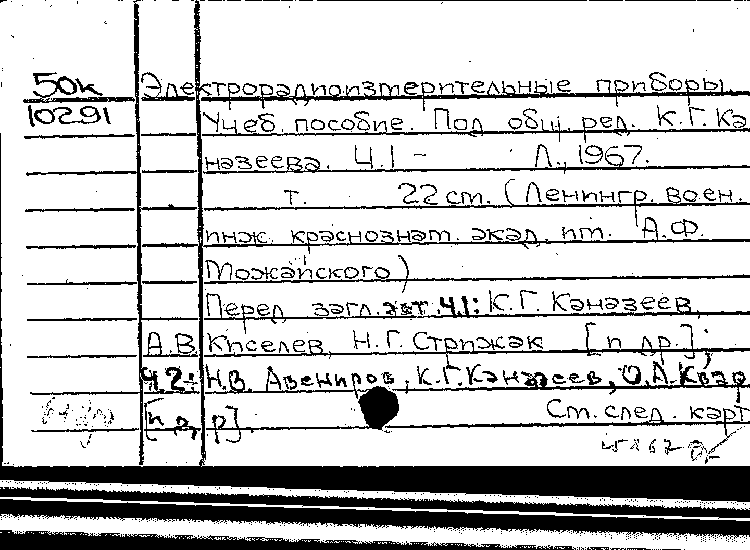 50к Электрорадиоизмерительные приборы.
10291 Учеб. пособие. Под общ. ред. К.Г. Ка
назеева. Ч.1 - Л., 1967.
т. 22 см. (Ленингр. воен.
инж. краснознам. акад. им. А.Ф.
Можайского)
Перед загл. авт. Ч.1: К.Г. Каназеев,
А.В. Киселев, Н.Г. Стрижак [и др.];
Ч.2: Н.В. Авениров, К.Г. Каназеев, О.А. Квар
[и др]. См. след. карт